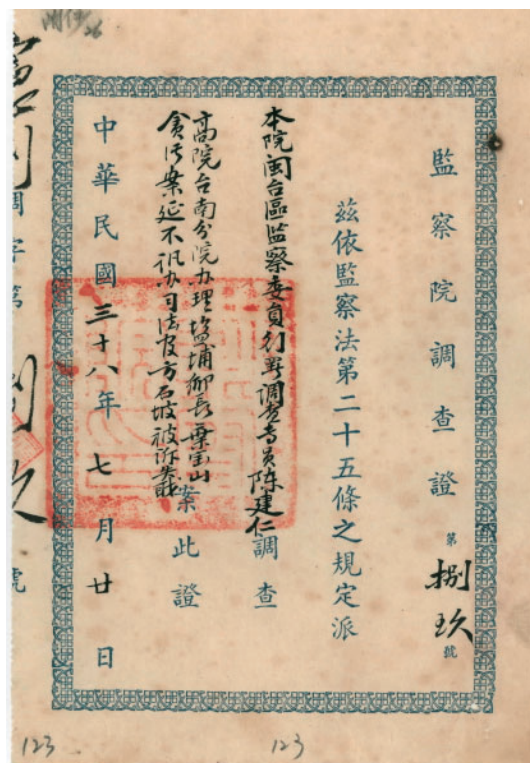 監察院調查證 第捌玖號
茲依監察法第二十五條之規定派
本院閩台區監察委員行署調查專員陳建仁調查
高院台南分院办理塩埔鄉長葉宝山
貪污案延不訊办司法及方石坡被诉 案此證
中華民國三十八年七月廿日
字第 玖號
123
123